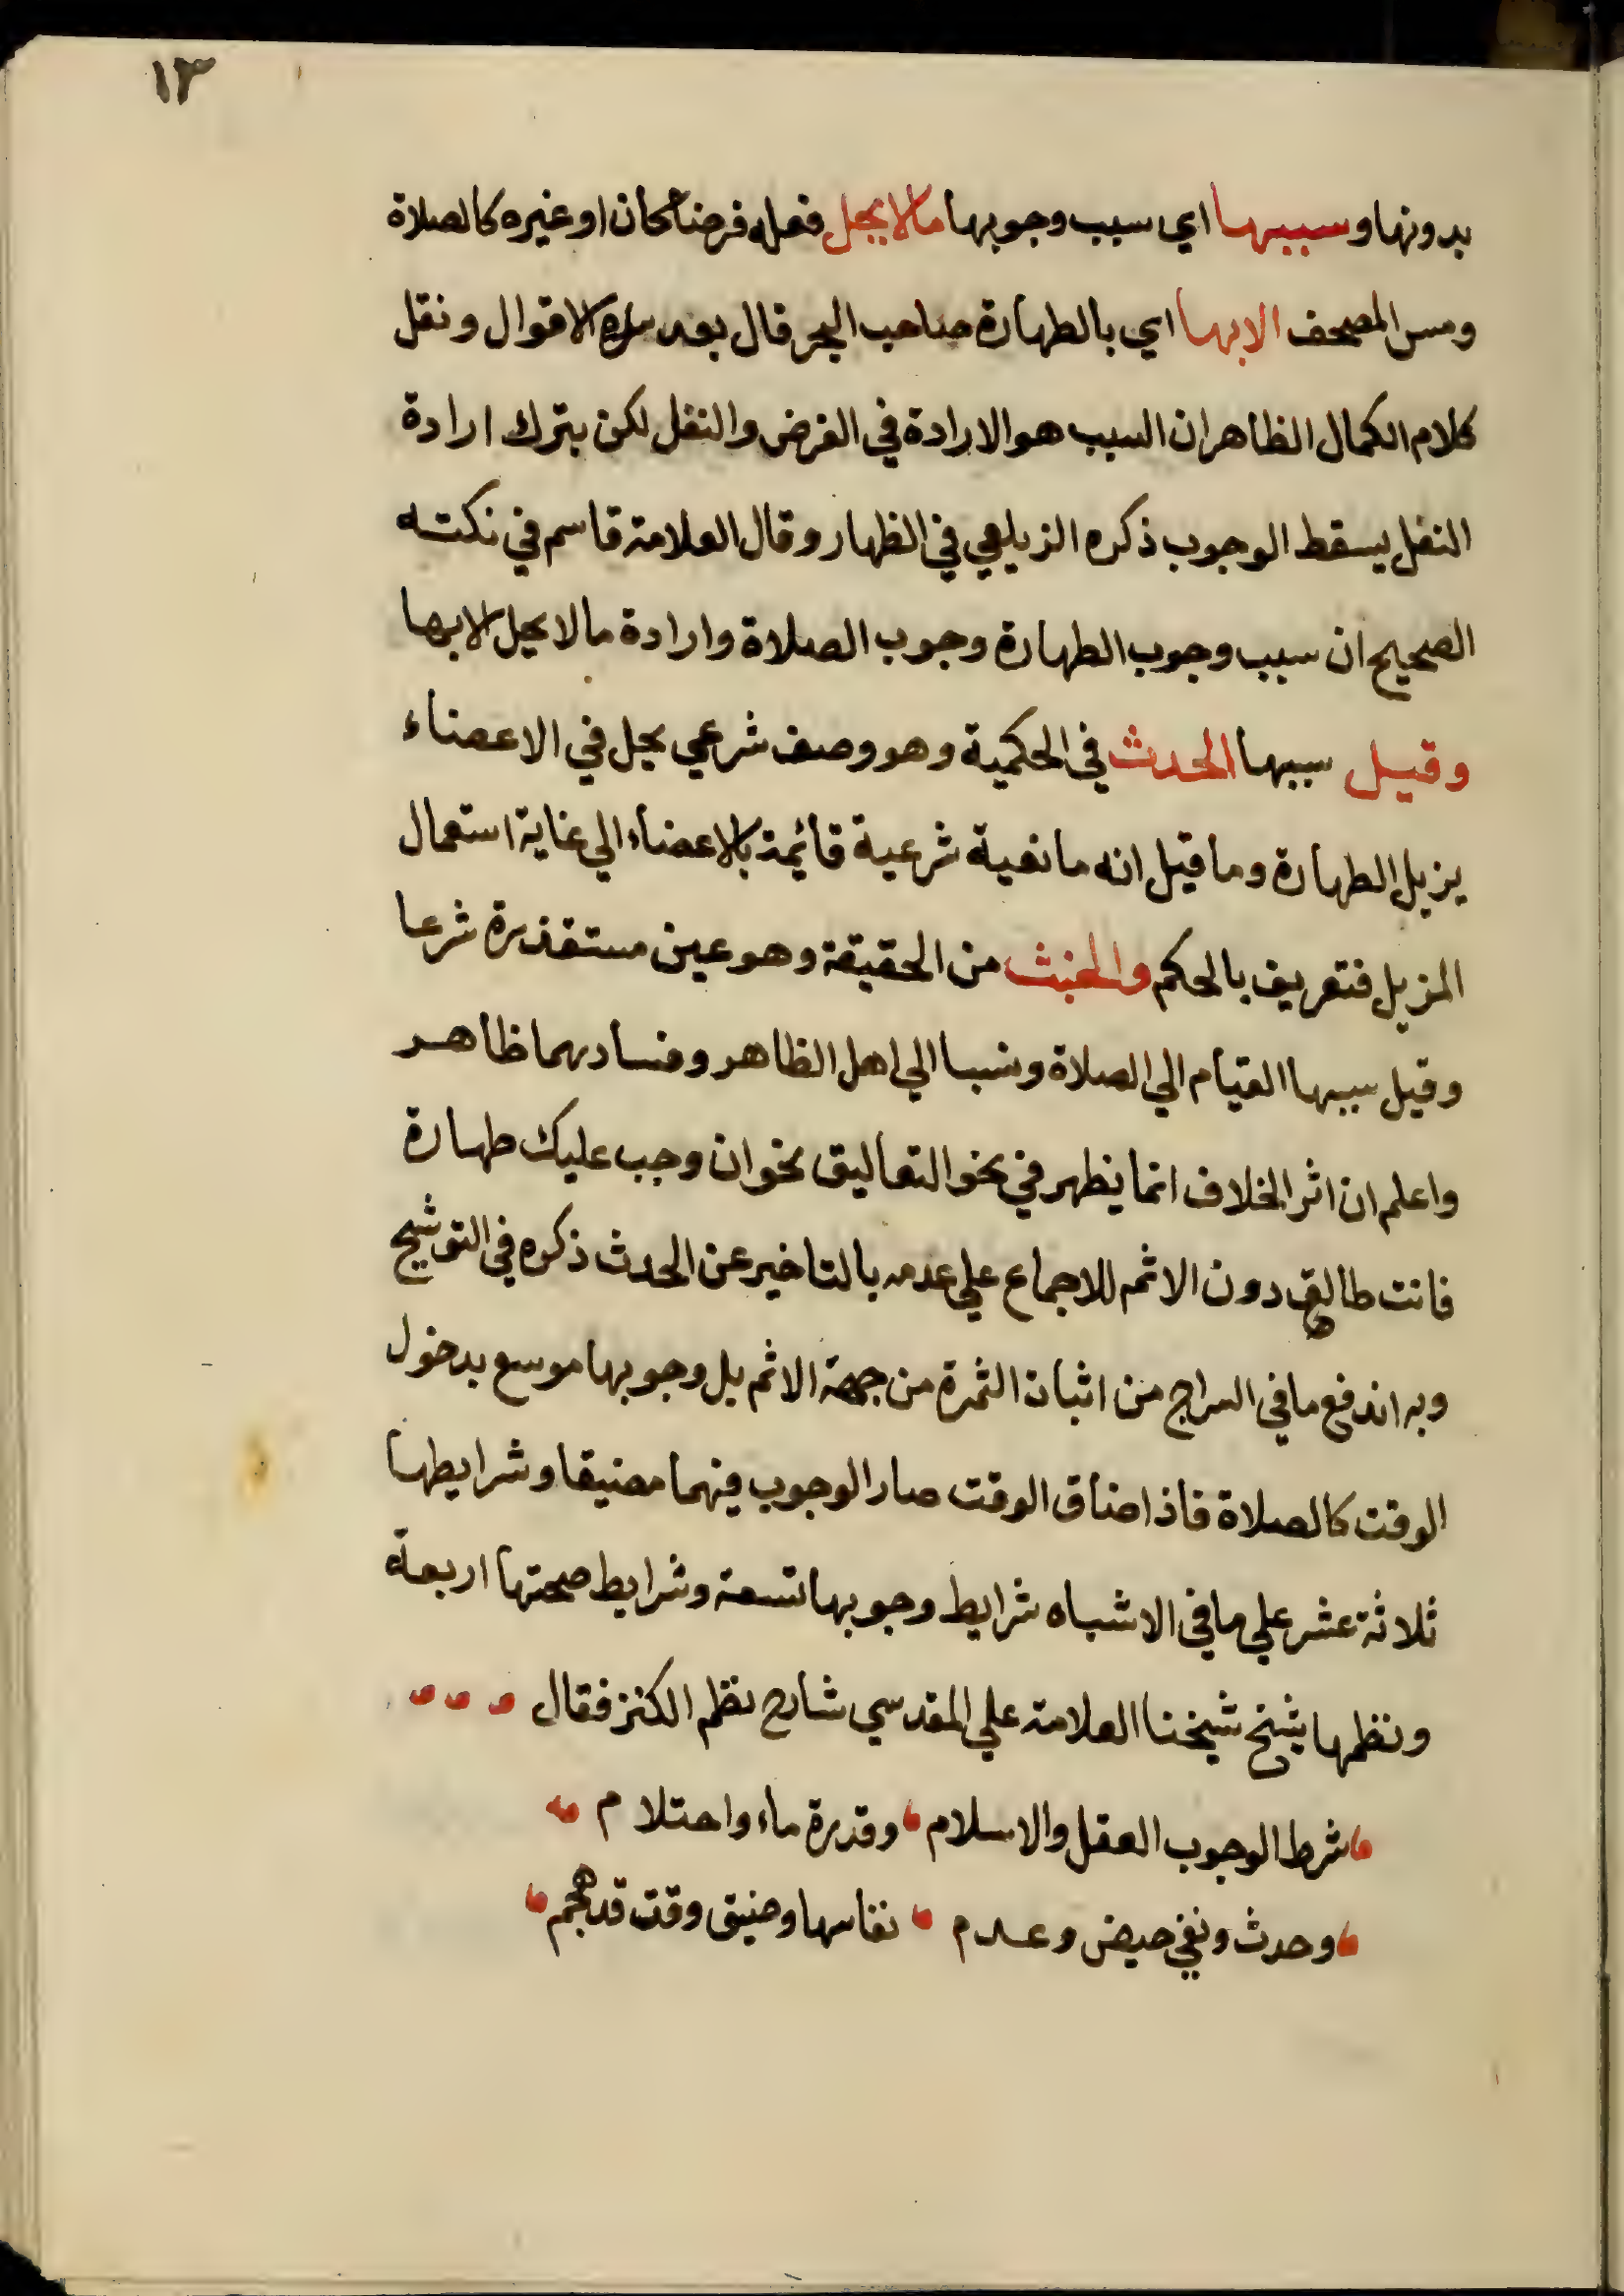 ١٣
بدونها وسببها اي سبب وجوبها مالا يحل فعله فرضا كان او غيره كالصلاة
ومس المصحف الا بها اي بالطهارة صاحب البحر قال بعد سرد الاقوال ونقل
كلام الكمال الظاهر ان السبب هو الارادة في الفرض والنفل لكن بترك ارادة
النفل يسقط الوجوب ذكره الزيلعي في الظهار وقال العلامة قاسم في نكته
الصحيح ان سبب وجوب الطهارة وجوب الصلاة وارادة مالا يحل الا بها
وقيل سببها الحدث في الحكمية وهو وصف شرعي يحل في الاعضاء
يزيل الطهارة وما قيل انه مانعية شرعية قائمة بالاعضاء الي غاية استعمال
المزيل فتعريف بالحكم والخبث من الحقيقة وهو عين مستقذرة شرعا
وقيل سببها القيام الي الصلاة ونسبا الي اهل الظاهر وفسادهما ظاهر
واعلم ان اثر الخلاف انما يظهر في نحو التعاليق نحو ان وجب عليك طهارة
فانت طالق دون الاثم للاجماع علي عدمه بالتاخير عن الحدث ذكره في التوشيح
وبه اندفع ما في السراج من اثبات الثمرة من جهة الاثم بل وجوبها موسع بدخول
الوقت كالصلاة فاذا ضاق الوقت صار الوجوب فيهما مضيقا وشرايطها
ثلاثة عشر علي ما في الاشباه شرايط وجوبها تسعة وشرايط صحتها اربعة
ونظمها شيخ شيخنا العلامة علي المقدسي شارح نظم الكنز فقال
شرط الوجوب العقل والاسلام وقدرة ماء واحتلام
وحدث ونفي حيض وعدم نفاسها وضيق وقت قد هجم